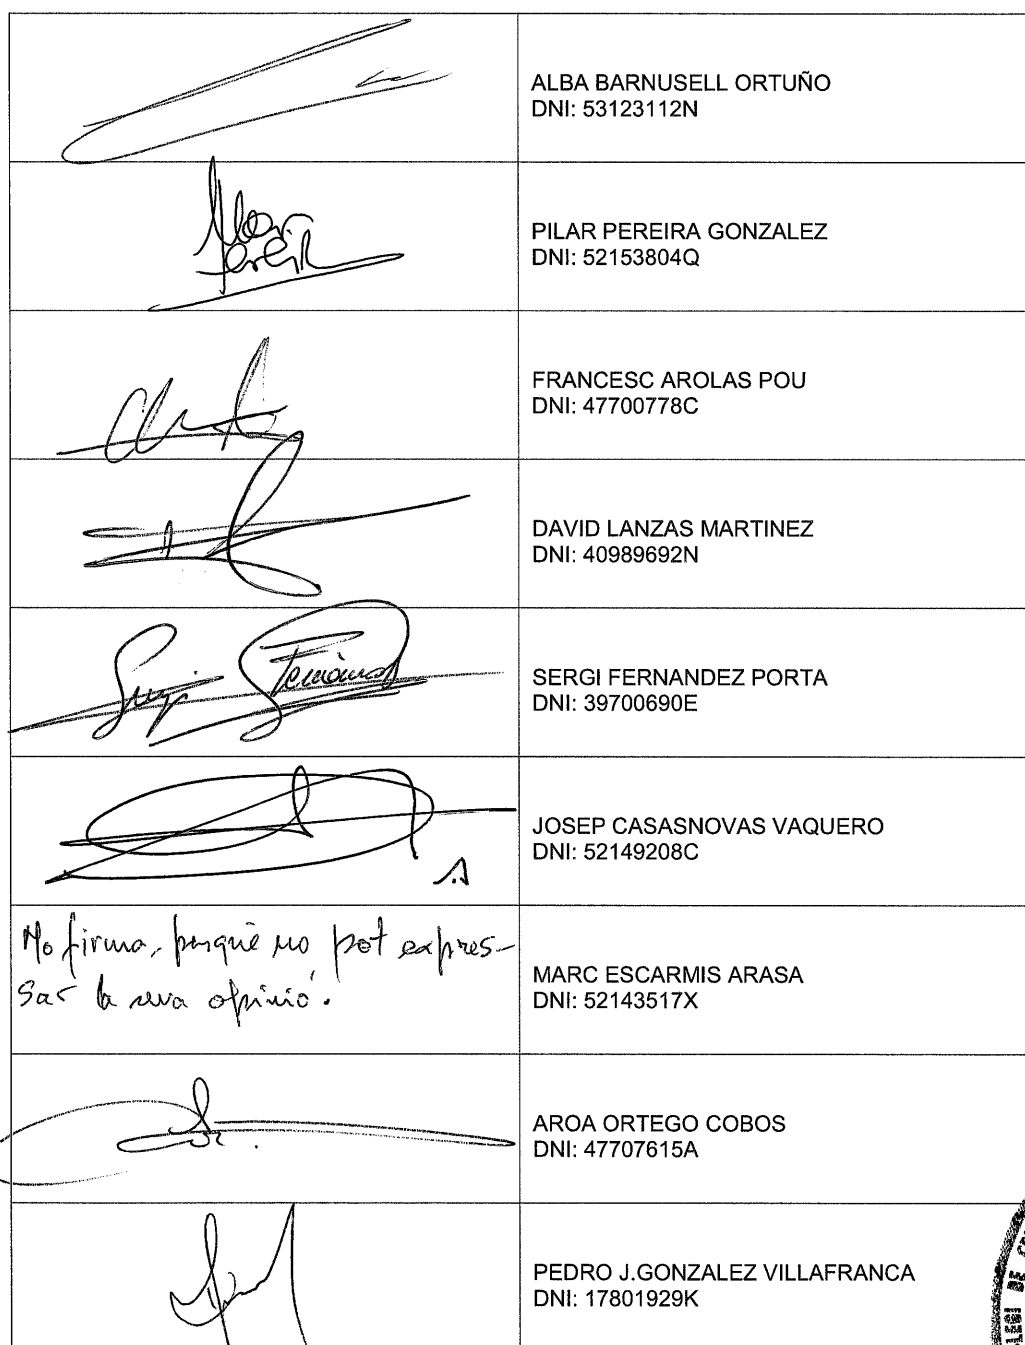 ALBA BARNUSELL ORTUÑO
DNI: 53123112N
PILAR PEREIRA GONZALEZ
DNI: 52153804Q
FRANCESC AROLAS POU
DNI: 47700778C
DAVID LANZAS MARTINEZ
DNI: 40989692N
Sergi Fernández
SERGI FERNANDEZ PORTA
DNI: 39700690E
JOSEP CASASNOVAS VAQUERO
DNI: 52149208C
No firma, perquè no pot expres-
sar la seva opinió.
MARC ESCARMIS ARASA
DNI: 52143517X
AROA ORTEGO COBOS
DNI: 47707615A
PEDRO J.GONZALEZ VILLAFRANCA
DNI: 17801929K